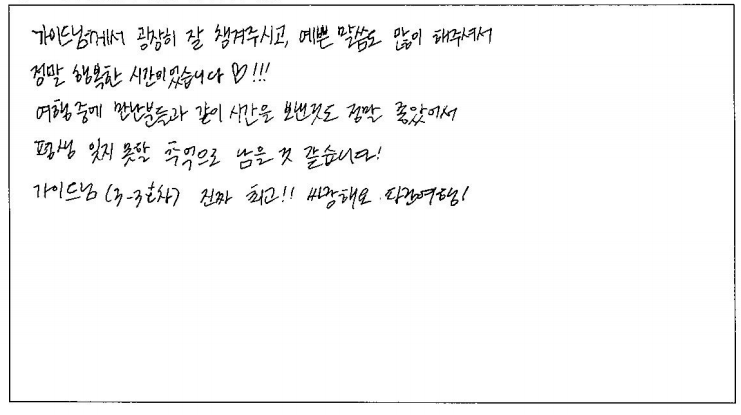 가이드님께서 굉장히 잘 챙겨주시고, 예쁜 말씀도 많이 해주셔서
정말 행복한 시간이었습니다 ♡!!!
여행 중에 만난분들과 같이 시간을 보낸것도 정말 좋았어서
평생 잊지 못할 추억으로 남을 것 같습니다!
가이드님 (3-3호차) 진짜 최고!! 싸랑해요